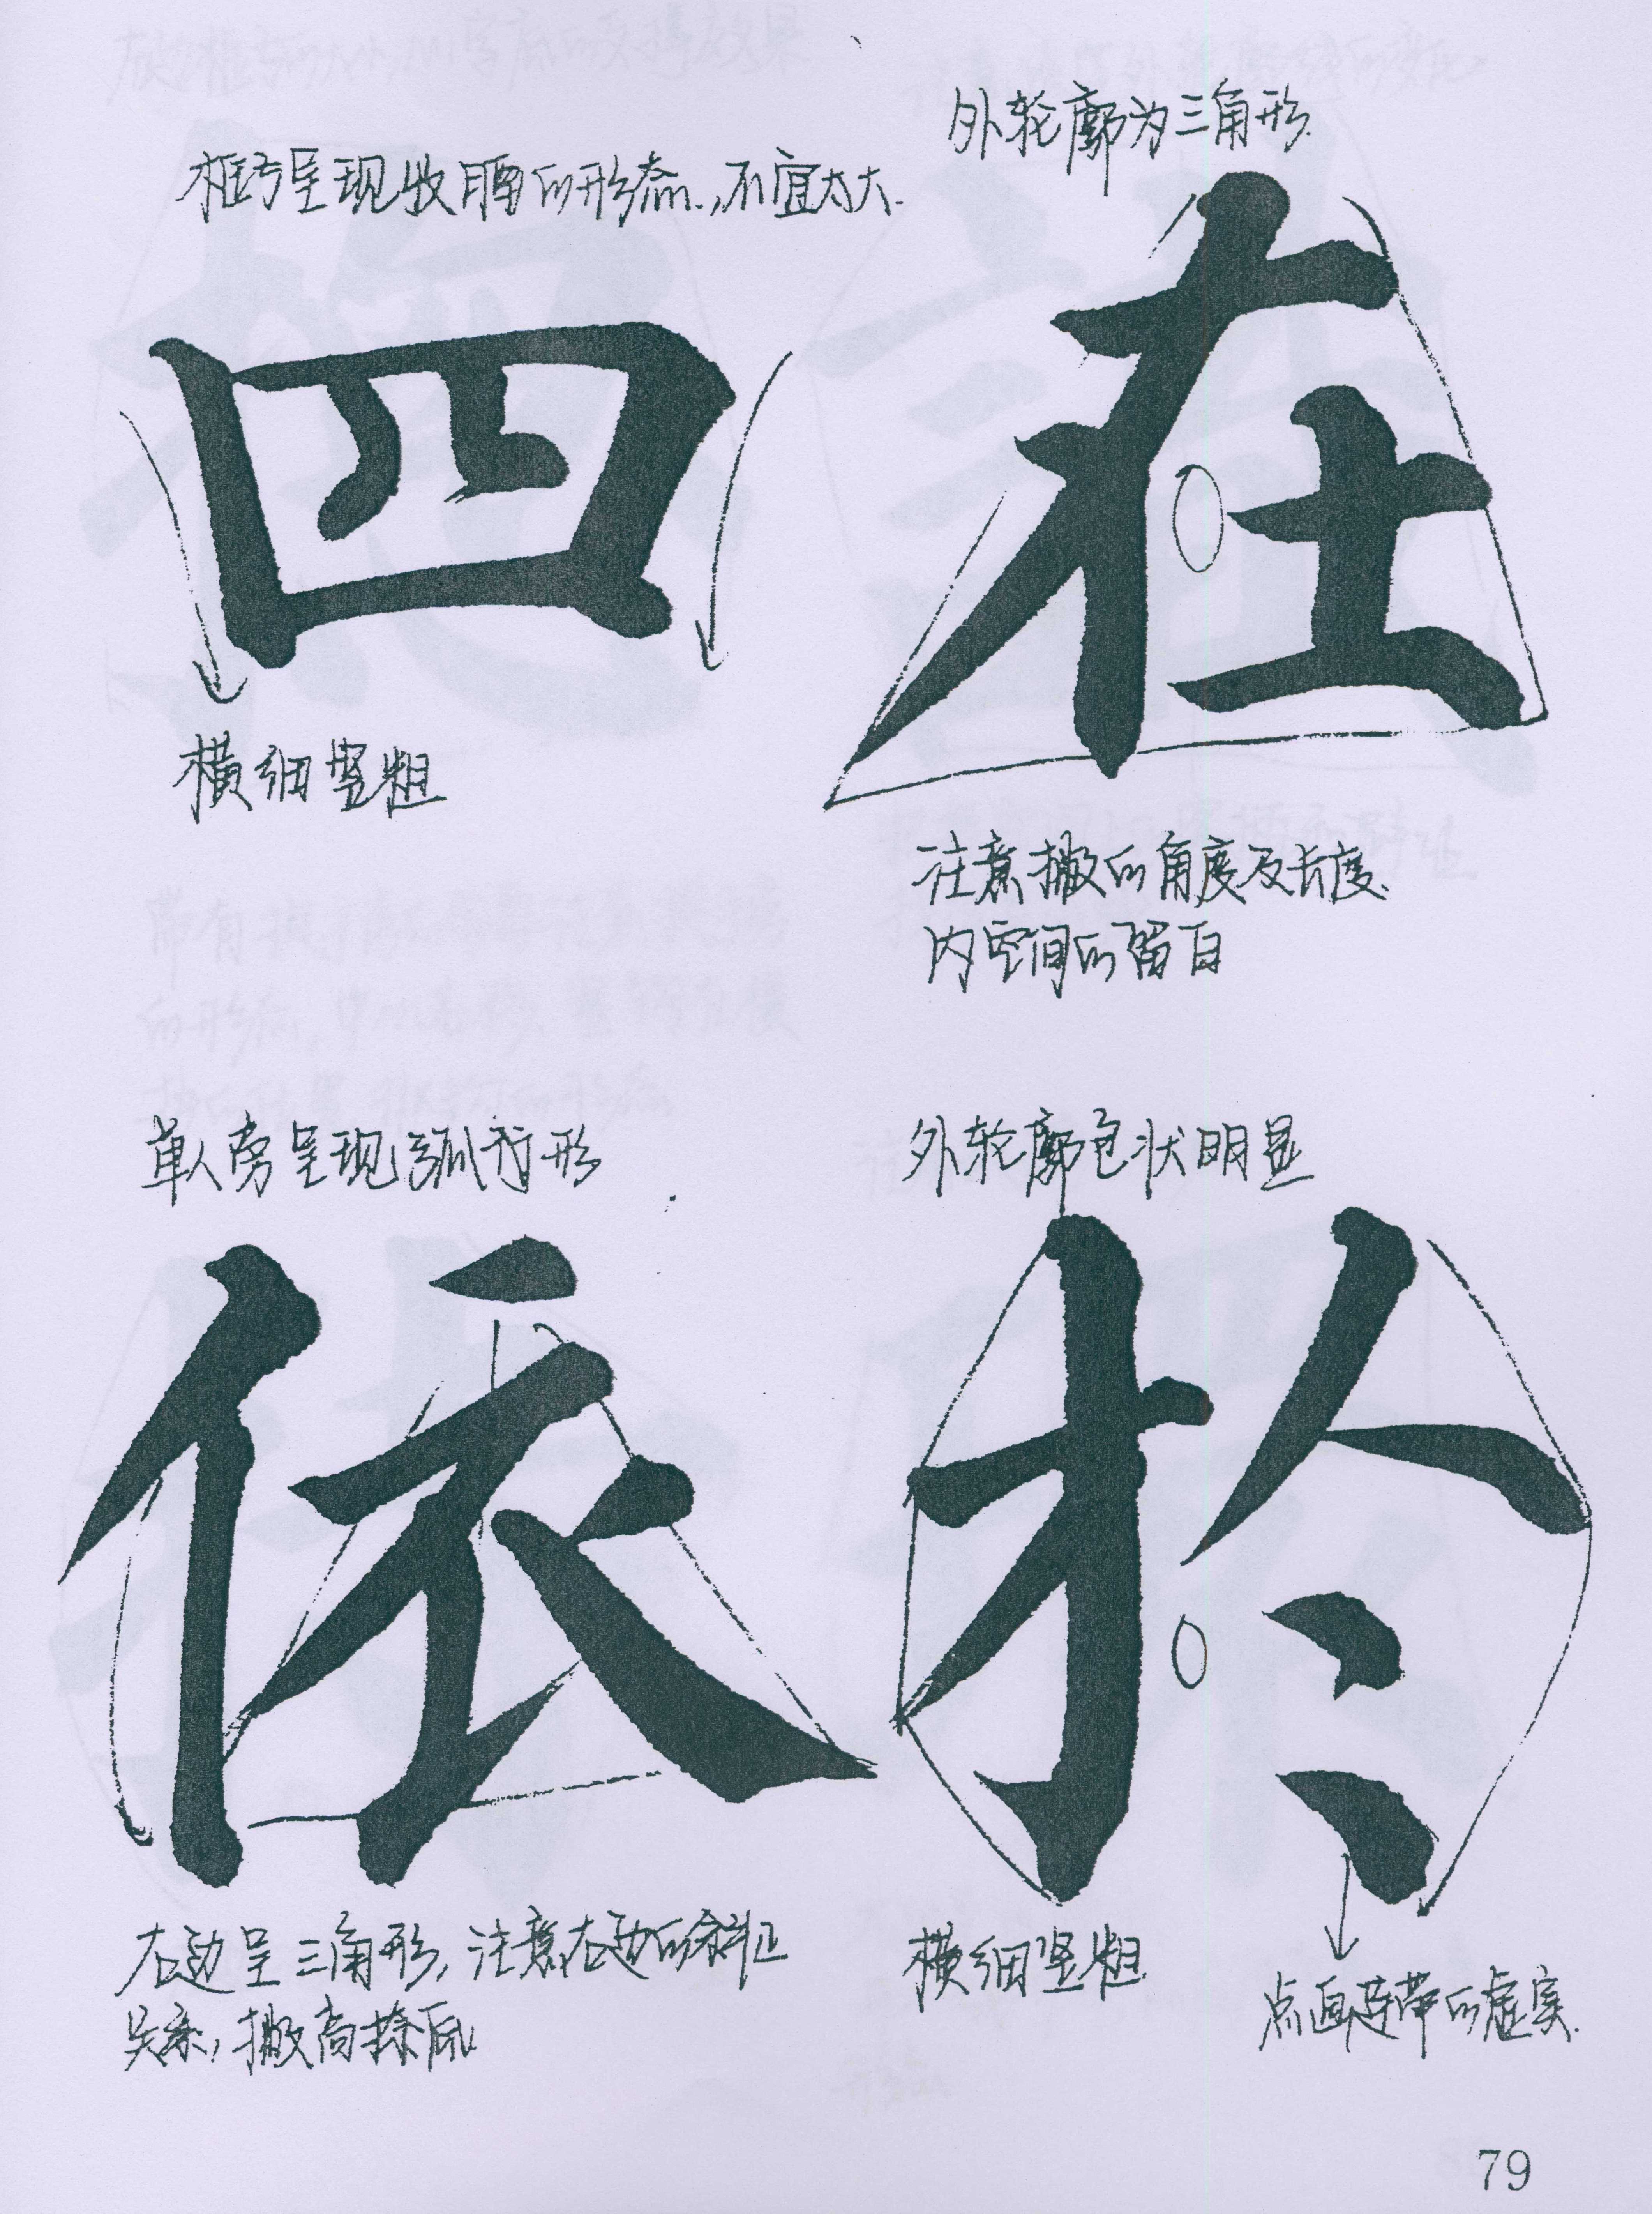 外轮廓为三角形.
框子呈现收腰的形态.,不宜太大.
四
在
横细竖粗
注意撇的角度及长度.
内空间的留白
单人旁呈现弧行形
外轮廓包状明显
依
於
右边呈三角形,注意右边的斜正
关系,撇高捺低
横细竖粗.
点画连带的虚实.
79